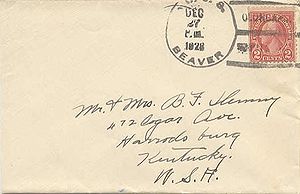 U.S.S.
DEC
27
P.M.
1928
BEAVER
2 CENTS 2
Mr. & Mrs. B. F. Fleming
472 Cogar Ave.
Harrodsburg
Kentucky.
U.S.A.